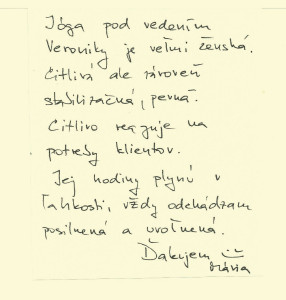 Jóga pod vedením
Veroniky je veľmi ženská.
Citlivá ale zároveň
stabilizačná, pevná.
Citlivo reaguje na
potreby klientov.
Jej hodiny plynú v
ľahkosti, vždy odchádzam
posilnená a uvoľnená.
Ďakujem
Mária